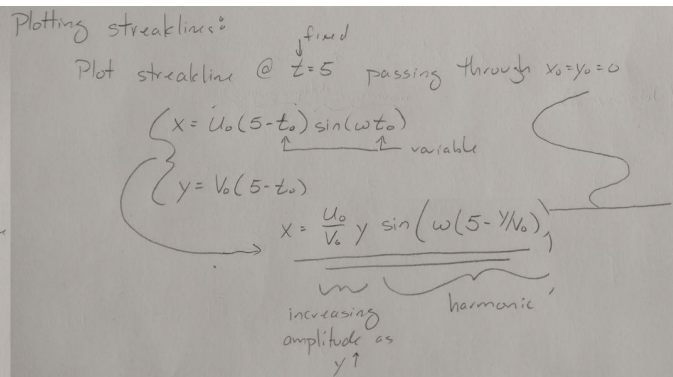 Plotting streaklines:
fixed
Plot streakline @ t=5 passing through x₀=y₀=0
x = U₀(5-t₀) sin(ωt₀)
variable
y = V₀(5-t₀)
x = U₀/V₀ y sin(ω(5-y/V₀))
increasing amplitude as y↑
harmonic